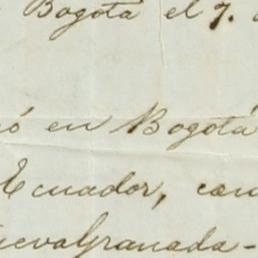 Bogotá el 7.
ó en Bogotá
Ecuador, con
uevaGranada-